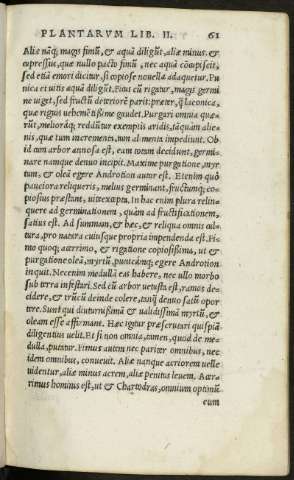 PLANTARVM LIB. II. 61
Aliæ nãq; magis fimũ, & aquã diligũt, aliæ minus. &
cupressus, quæ nullo pacto fimum, nec aquã cõcupiscit,
sed etiã emori dicitur, si copiose nouella adaquetur. Pu
nica et uitis aquã diligũt. Ficus cũ rigatur, magis germi
ne uiget, sed fructũ deteriorẽ parit: præter, q̃ laconica,
quæ riguis uehemẽtissime gaudet. Purgari omnia quæ
rũt, melioráq; redduntur exemptis aridis, tãquàm alie
nis, quæ tum incremento, tum alimento impediunt. Ob
id cum arbor annosa est, eam totam decidunt, germi-
nare nanque denuo incipit. Maxime purgatione, myr
tum, & olea egere Androtion autor est. Etenim quò
pauciora reliqueris, melius germinant, fructumq; co-
piosius præstant, uite excepta. In hac enim plura relin-
quere ad germinationem, quàm ad fructificationem,
satius est. Ad summam, & hæc, & reliqua omnis cul-
tura, pro natura cuiusque propria impendenda est. Fi-
mo quoq; acerrimo, & rigatione copiosissima, ut &
purgatione oleã, myrtũ, punicãmq; egere Androtion
inquit. Nec enim medullã eas habere, nec ullo morbo
sub terra infestari. Sed cũ arbor uetusta est, ramos de-
cidere, & trũcũ deinde colere, tanq̃ denuo satũ opor
tere. Sunt qui diuturnissimã & ualidissimã myrtũ, &
oleam esse affirmant. Hæc igitur præseruari quispiã
diligentius uelit. Et si non omnia, tamen, quod de me-
dulla, putatur. Fimus autem nec pariter omnibus, nec
idem omnibus, conuenit. Aliæ nanque acriorem uelle
uidentur, aliæ minus acrem, aliæ penitus leuem. Acer-
rimus hominis est, ut & Chartodras, omnium optimũ
eum